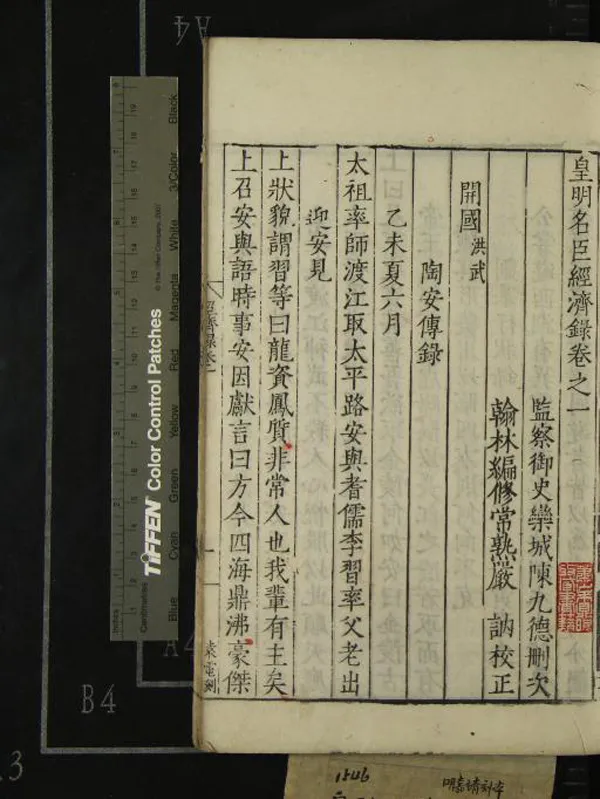 皇明名臣經濟錄卷之一
監察御史欒城陳九德刪次
翰林編修常熟嚴 訥校正
開國 洪武
陶安傳錄
乙未夏六月
太祖率師渡江取太平路安與耆儒李習率父老出
迎安見
上狀貌謂習等曰龍資鳳質非常人也我輩有主矣
上召安與語時事安因獻言曰方今四海鼎沸豪傑
經濟錄卷之一
袁電刻
TIFFEN Color Control Patches
© The Tiffen Company, 2007
Blue Cyan Green Yellow Red Magenta White 3/Color Black
Inches
Centimetres
A4
A4
B4
1546